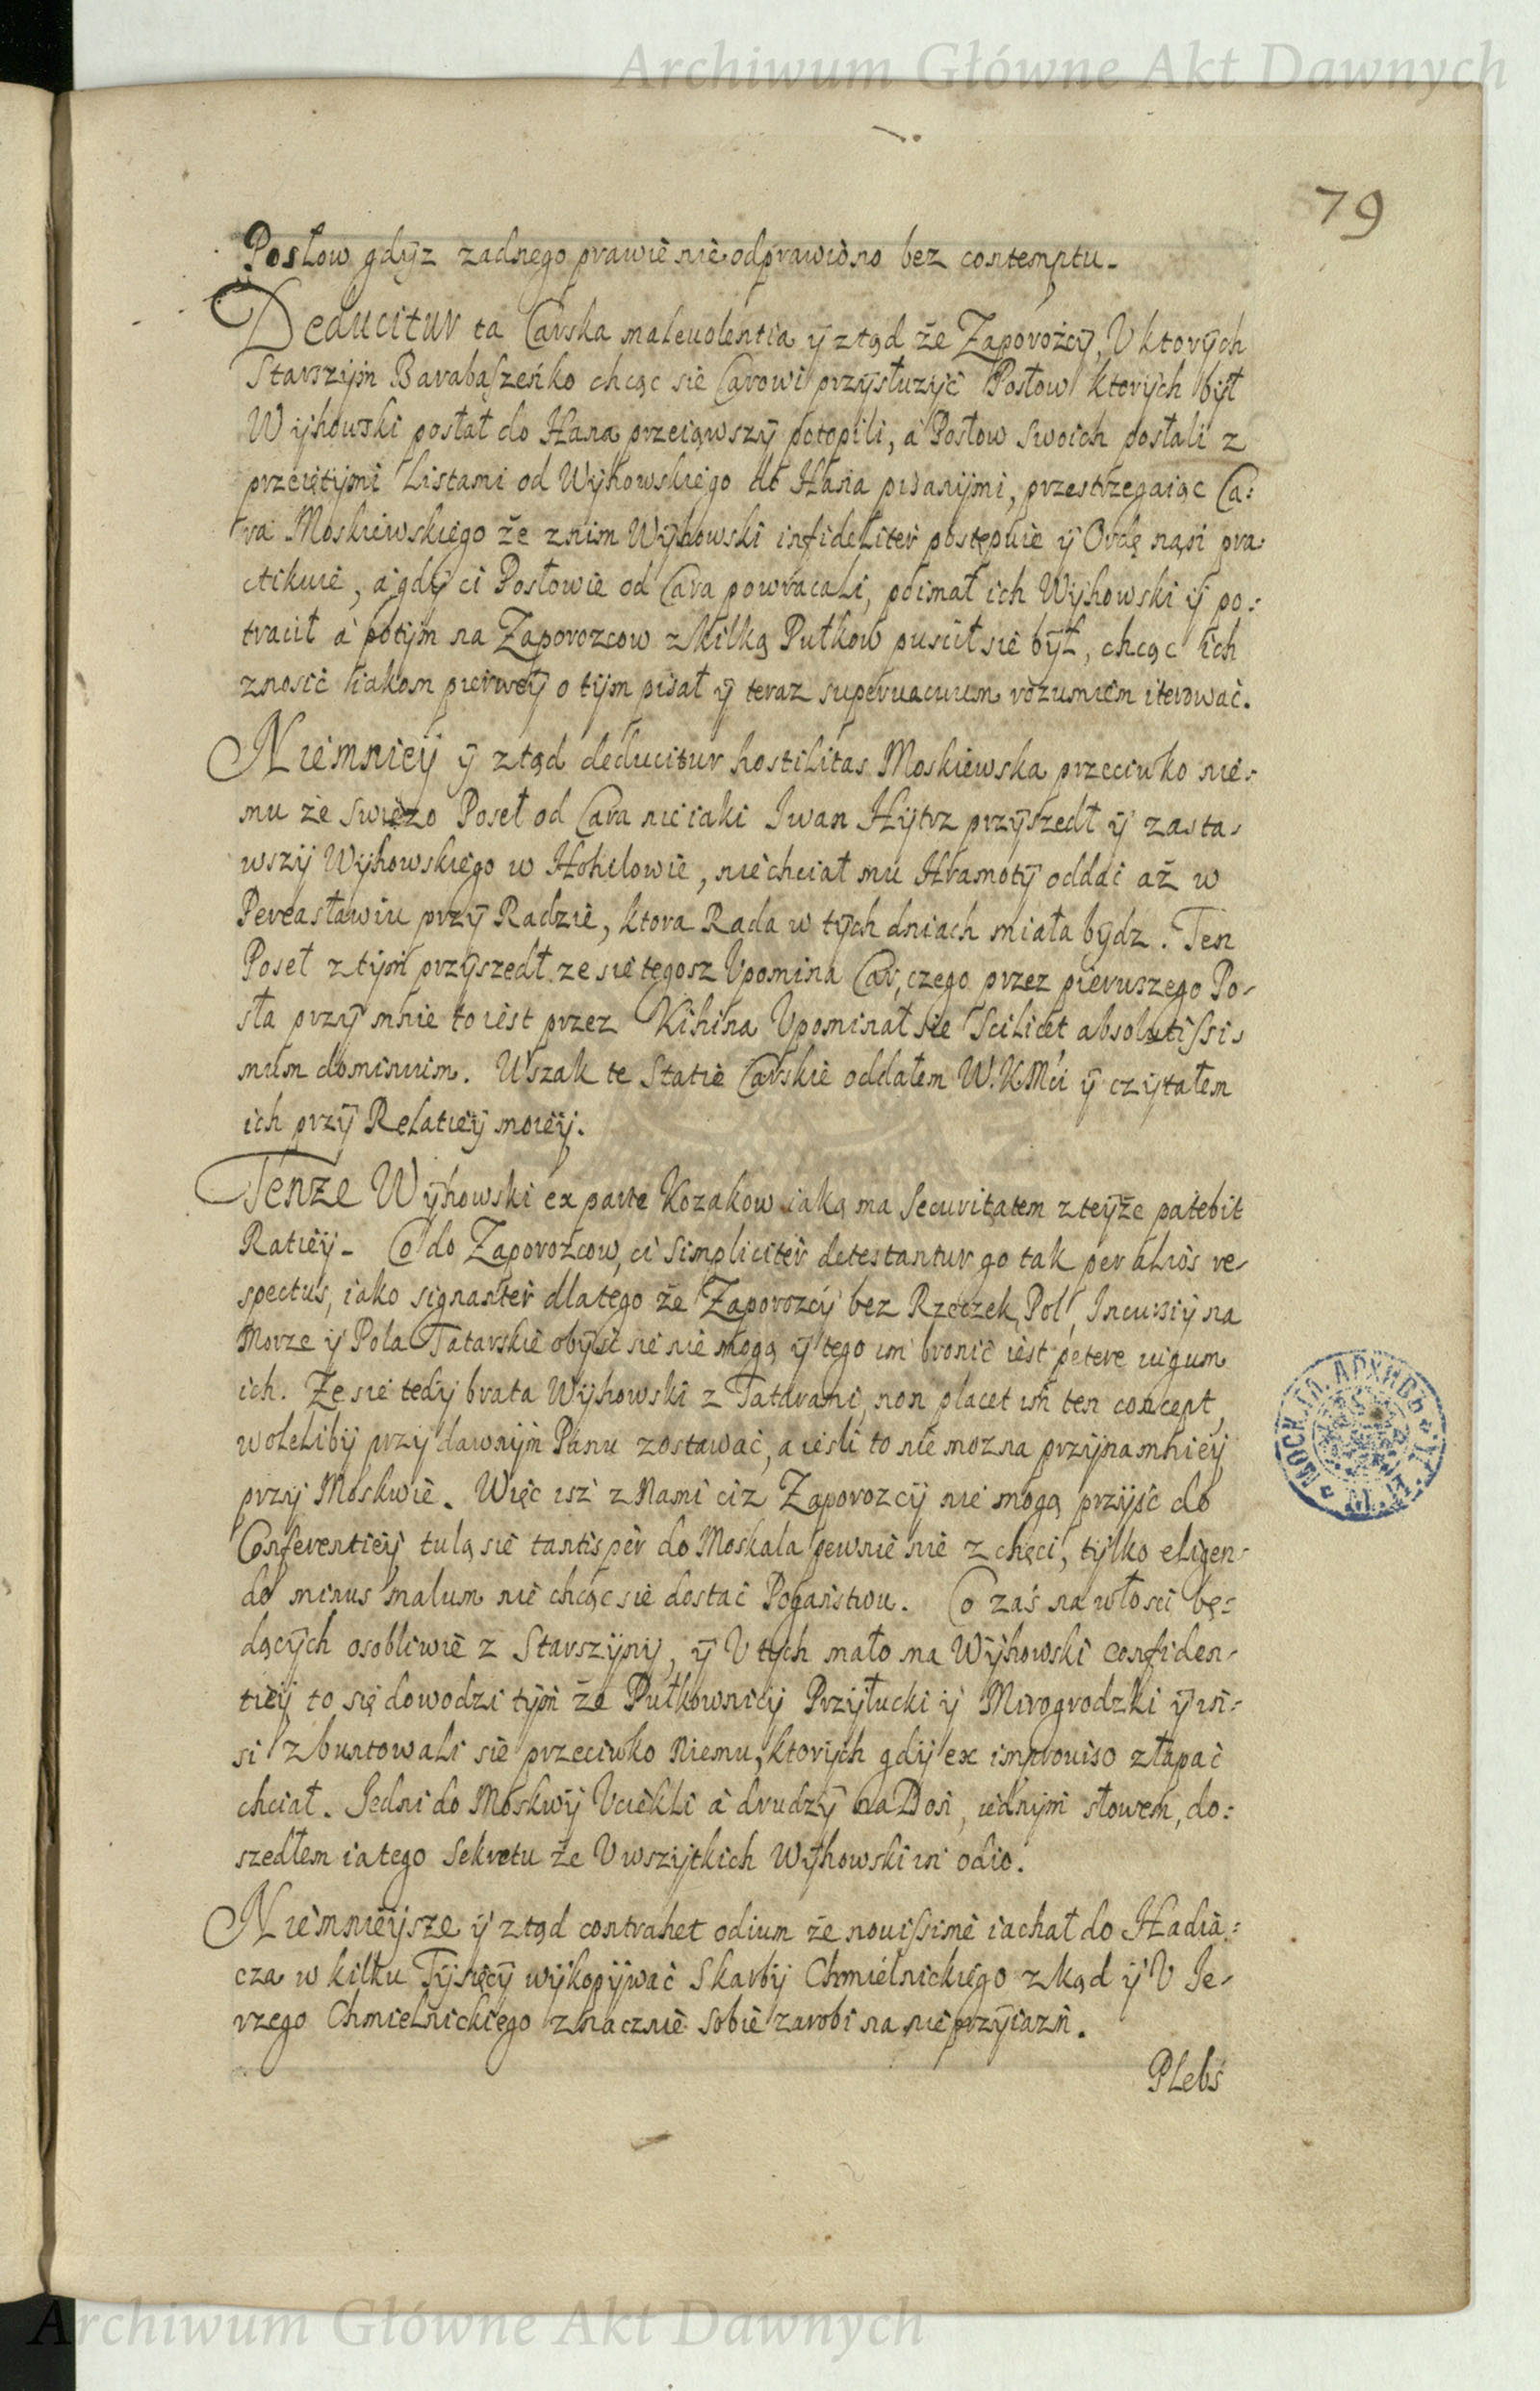 Archiwum Główne Akt Dawnych
79
Posłow gdyz zadnego prawie nie odprawiono bez contemptu.
Deducitur ta Carska maleuolentia y ztąd że Zaporożcy, V ktorych
Starszym Barabaszeńko chcąc sie Carowi przysłuzyć Posłow ktorych był
Wyhowski posłał do Hana przeiąwszy potopili, a Posłow swoich posłali z
przeiętymi Listami od Wyhowskiego do Hana pisanymi, przestrzegaiąc Ca:
ra Moskiewskiego że znim Wyhowski infideliter postępuie y Ordę nań pra
ctikuie, a gdy ci Posłowie od Cara powracali, poimał ich Wyhowski y po:
tracił a potym na Zaporozcow z kilką Pułkow puscił sie był, chcąc ich
znosić iakom pierwey o tym pisał y teraz superuacuum rozumiem iterować.
Niemniey y ztąd deducitur hostilitas Moskiewska przeciwko nie:
mu że swiezo Poseł od Cara nieiaki Iwan Hytrz przyszedł y zasta:
wszy Wyhowskiego w Hohilowie, niechciał mu Hramoty oddać aż w
Pereasławiu przy Radzie, ktora Rada w tych dniach miała bydz. Ten
Poseł z tym przyszedł ze sie tegosz Vpomina Car, czego przez pierwszego Po:
sła przy mnie to iest przez Kihina Vpominał sie scilicet absolutissi:
mum dominium. Wszak te Statie Carskie oddałem W.KMći y czytałem
ich przy Relatiey moiey.
Tenze Wyhowski ex parte Kozakow iaką ma Securitatem z teyże patebit
Ratiey. Co do Zaporozcow, ci simpliciter detestantur go tak per alios re:
spectus, iako signanter dlatego że Zaporozcy bez Rzeczek, Pol, Incursiy na
Morze y Pola Tatarskie obyść sie nie mogą y tego im bronić iest petere iugum
ich. Ze sie tedy brata Wyhowski z Tatarami, non placet im ten concept,
woleliby przy dawnym Panu zostawać, a iesli to nie mozna przynamniey
przy Moskwie. Więc isz z Nami ciz Zaporozcy nie mogą przyść do
Conferentiey tulą sie tantisper do Moskala pewnie nie z chęci, tylko eligen:
do minus malum nie chcąc sie dostać Pogaństwu. Co zaś na włosci bę:
dących osobliwie z Starszyny, y V tych mało ma Wyhowski confiden:
tiey to się dowodzi tym że Pułkownicy Przyłucki y Mirogrodzki y in:
si zbuntowali sie przeciwko Niemu, ktorych gdy ex improuiso złapać
chciał. Jedni do Moskwy Vciekli a drudzy na Don, iednym słowem, do:
szedłem ia tego Sekretu że V wszytkich Wyhowski in odio.
Niemnieysze y ztąd contrahet odium że nouissime iachał do Hadia:
cza w kilku Tysięcy wykopywać Skarby Chmielnickiego z kąd y V Je:
rzego Chmielnickiego znacznie sobie zarobi na nieprzyiazń.
Plebs
Archiwum Główne Akt Dawnych